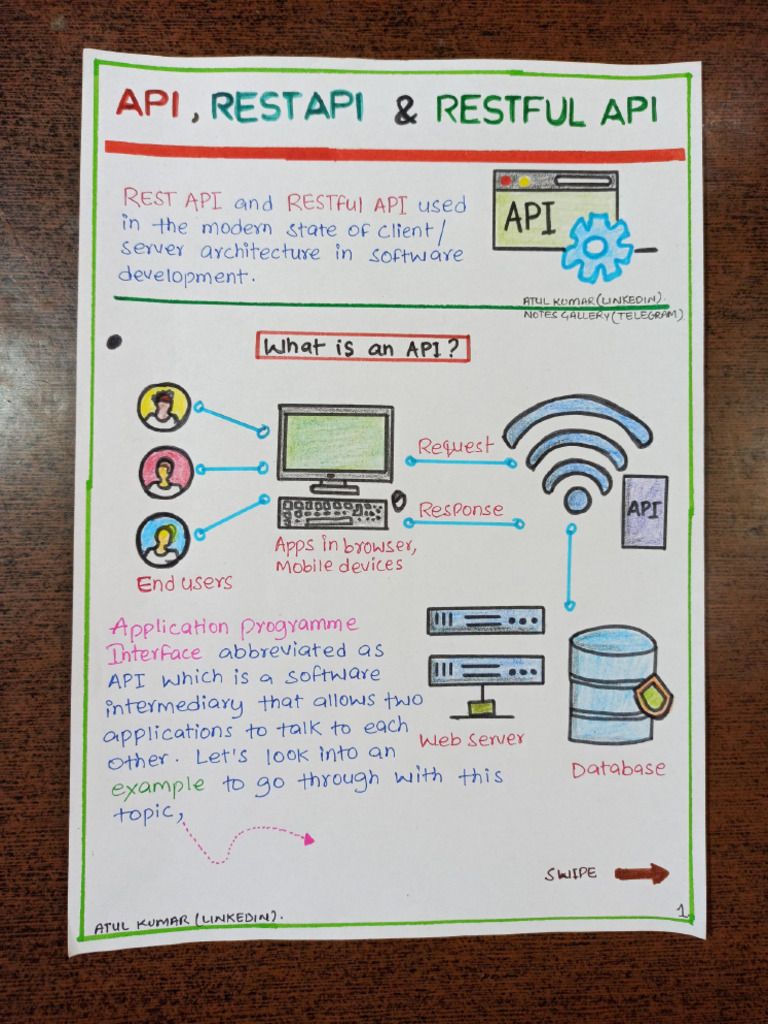 API, REST API & RESTFUL API
REST API and RESTful API used
in the modern state of client/
server architecture in software
development.
API
ATUL KUMAR (LINKEDIN).
NOTES GALLERY (TELEGRAM)
What is an API?
Request
Response
API
Apps in browser,
Mobile devices
End users
Application programme
Interface abbreviated as
API which is a software
intermediary that allows two
applications to talk to each
other. Let's look into an
example to go through with this
topic,
Web server
Database
SWIPE
1
ATUL KUMAR (LINKEDIN).